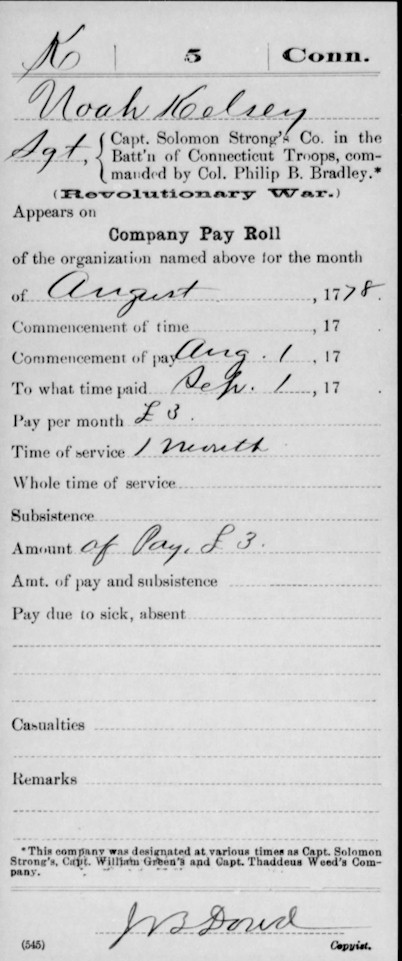 K | 5 | Conn.
Noah Kelsey
Sgt, { Capt. Solomon Strong's Co. in the
Batt'n of Connecticut Troops, com-
manded by Col. Philip B. Bradley.*
(Revolutionary War.)
Appears on
Company Pay Roll
of the organization named above for the month
of August, 1778.
Commencement of time, 17 .
Commencement of pay Aug. 1, 17 .
To what time paid Sep. 1, 17 .
Pay per month £ 3.
Time of service 1 Month
Whole time of service
Subsistence
Amount of Pay, £ 3.
Amt. of pay and subsistence
Pay due to sick, absent
Casualties
Remarks
*This company was designated at various times as Capt. Solomon
Strong's, Capt. William Green's and Capt. Thaddeus Weed's Com-
pany.
J B Dowd
(545) Copyist.